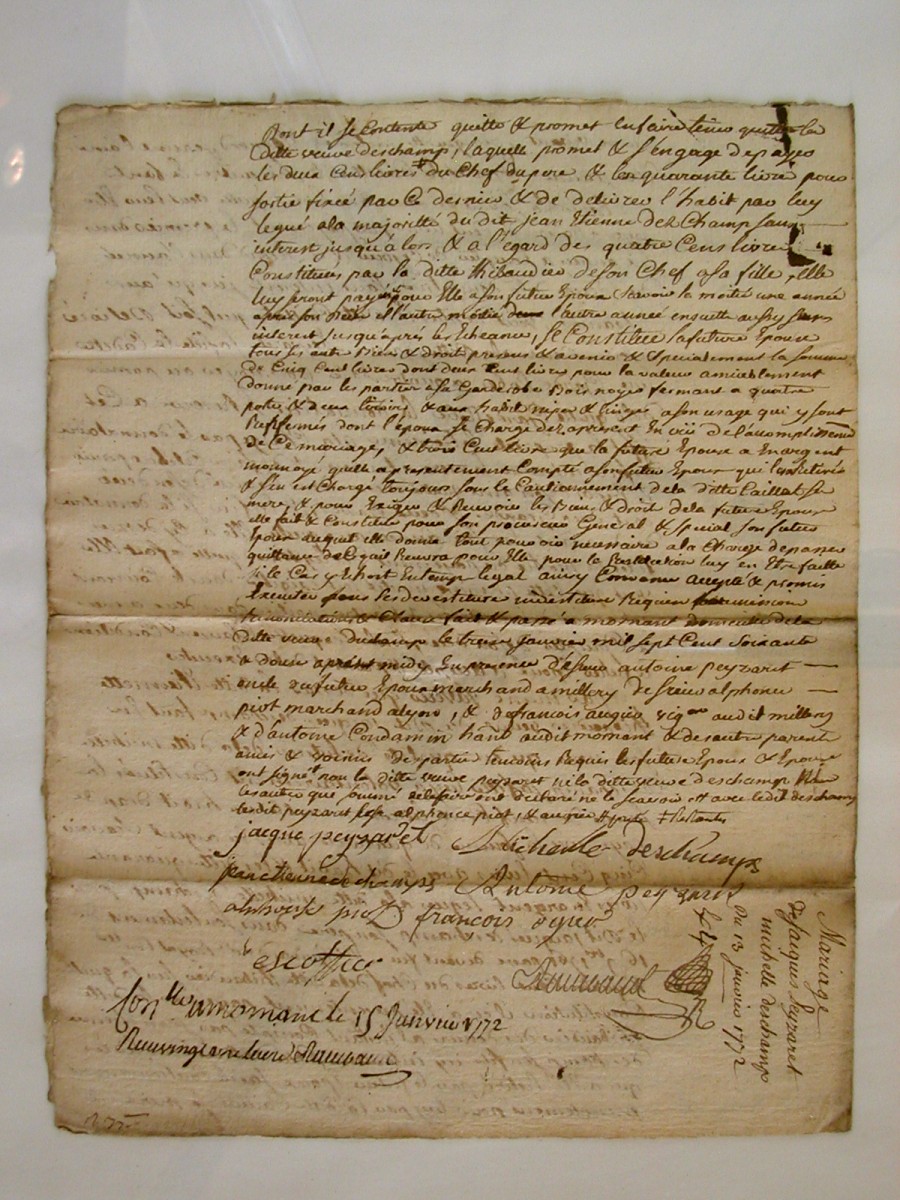 Dont il se Contente quitte & promet en faire tenir quitte la
ditte veuve deschamp, laquelle promet & s'engage de payer
les deux Cens livres du Chef du pere, & les quarante livre pour
sortie fixée par Ce dernier & de delivrer l'habit par luy
legué a la majoritté du dit jean Etienne deschamp sans
interest jusqu'a lors & a l'egard des quatre Cens livre
Constitués par la ditte thibaudier de son Chef a sa fille, Elle
luy seront payés pour Elle a son futur Epoux Savoir la moitié une année
apres son deces et l'autre moitié l'autre année ensuitte aussy sans
interest jusqu'apres les Echeance, se Constitue la future Epouse
tous ses autre Biens & droit presens & avenir & specialement la somme
de Cinq Cent livres dont deux Cent livres pour la valeur amiablement
donné par les partie a sa Garderobe Bois noyer fermant a quatre
porte & deux tiroirs, & aux habit nipes & linges a son usage qui y sont
Renfermés dont l'epoux se Charge dez apresent En vüe de l'accomplissement
de Ce mariage, & trois Cent livre que la future Epouse a En argent
monnoyé quelle a presentement Compté a son futur Epoux qui les a Retirés
& s'en est Chargé toujours sous le Cautionnement de la ditte Caillat sa
mere, & pour Exiger & Recevoir les Biens & droit de la future Epouse
elle fait & Constitue pour son procureur General & special son futur
Epoux auquel elle donne tout pouvoir necessaire a la Charge de passer
quittance de Ce quil Recevra pour Elle pour la Restitution luy en Etre faitte
si le Cas y Echoit En temps legal ainsy Convenu accepté & promis
Executer pour les devestiture investiture Requises soumission
Renonciation & Clause fait & passé a mornant domicile de la
ditte veuve deschamp le treize janvier mil sept Cent soixante
& douze apres midy En presence de sieur antoine peyzaret
oncle du futur Epoux marchand a millery de sieur alphonce
piot marchand a lyon, & de francois augier vig.on audit millery
& d'antoine Condamin hant audit mornant & des autre parents
amis & voisins de partie temoins Requis les futur Epoux & Epouse
ont signé non la ditte veuve peyzaret ni la ditte veuve deschamp
les autre que sommé de le faire ont declaré ne le scavoir avec ledit deschamp
ledit peyzaret alphonce piot, & augier
jacque peyzaret Michelle deschamps
jean etienne dechamps Antoine peyzaret
alphonse piot francois ogier
escoffier
Con.llé a mornant le 15 Janvier 1772
Mariage
de Jaiques Peyzaret
michelle deschamps
du 13 janvier 1772